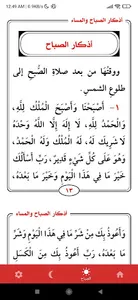 12:49 AM | 0.9KB/s
أذكار الصباح والمساء
أذكار الصباح
ووقتُهَا من بعد صلاةِ الصُّبحِ إلى
طلوعِ الشمسِ.
١ - أَصْبَحْنَا وَأَصْبَحَ الْمُلْكُ لِلَّهِ،
وَالْحَمْدُ لِلَّهِ، لَا إِلَهَ إِلَّا اللَّهُ وَحْدَهُ
لَا شَرِيكَ لَهُ، لَهُ الْمُلْكُ وَلَهُ الْحَمْدُ،
وَهُوَ عَلَى كُلِّ شَيْءٍ قَدِيرٌ، رَبِّ أَسْأَلُكَ
خَيْرَ مَا فِي هَذَا الْيَوْمِ وَخَيْرَ مَا بَعْدَهُ،
١٣
أذكار الصباح والمساء
وَأَعُوذُ بِكَ مِنْ شَرِّ مَا فِي هَذَا الْيَوْمِ وَشَرِّ
مَا بَعْدَهُ، رَبِّ أَعُوذُ بِكَ مِنَ الْكَسَلِ
الصباح